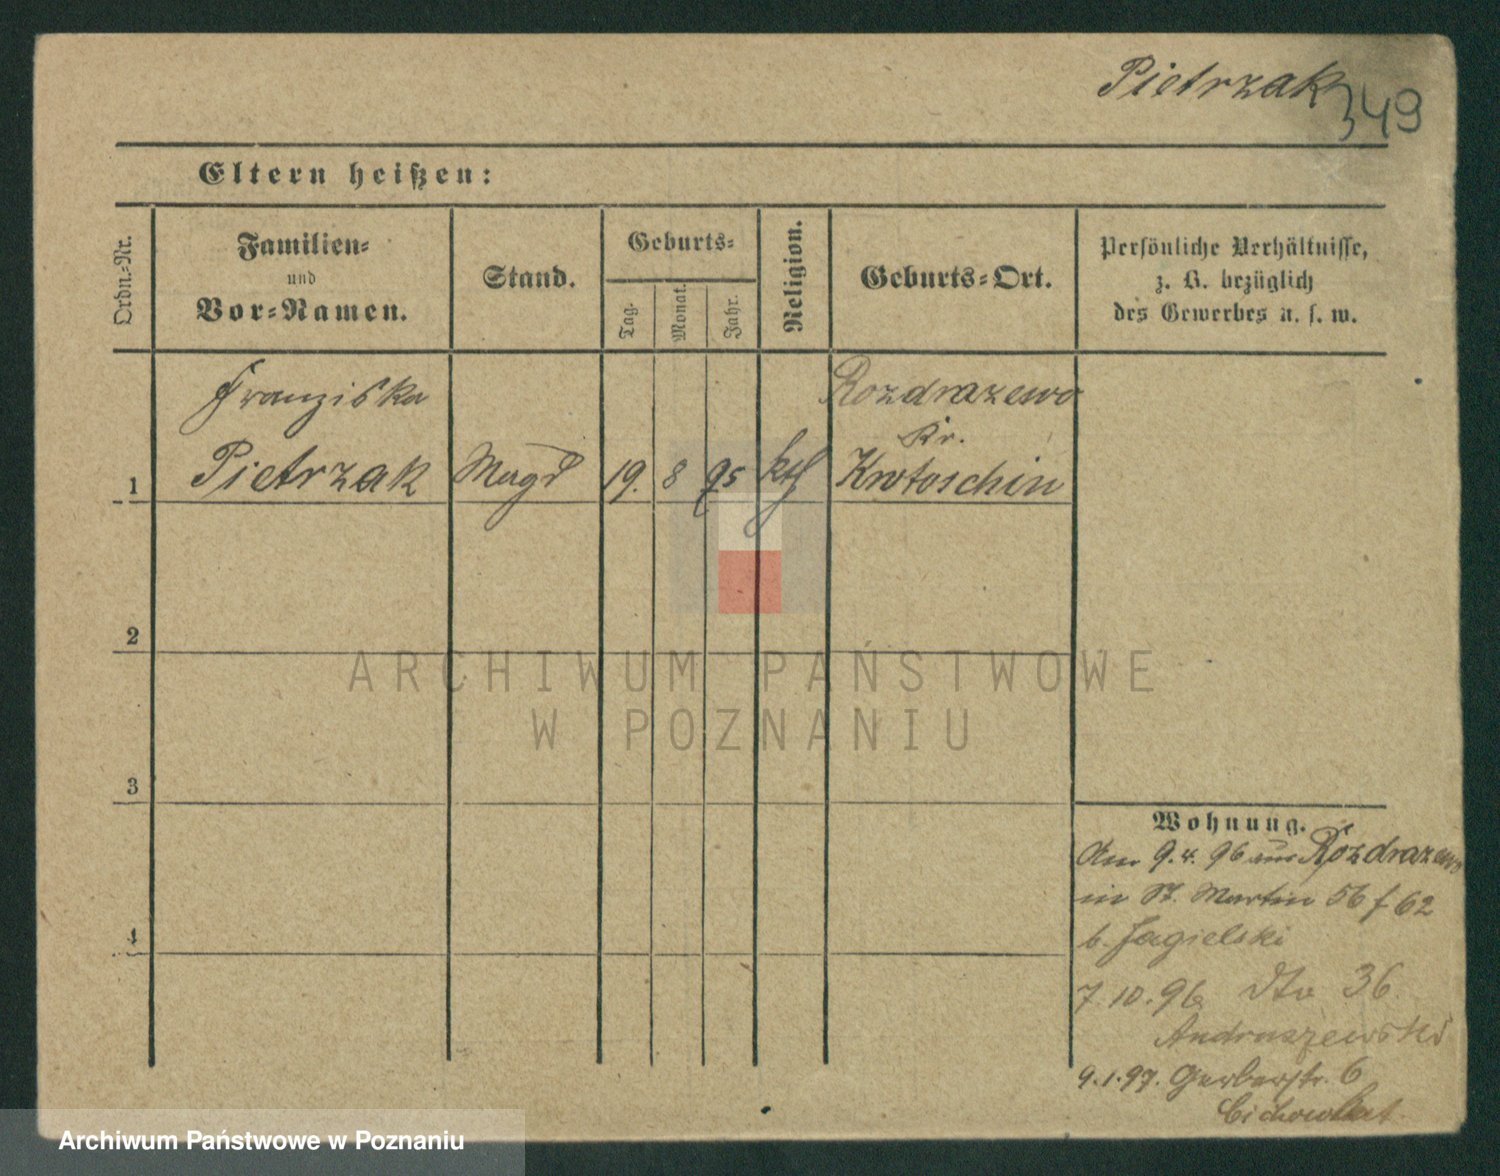 Pietrzak
349
Eltern heißen:
Ordn.-Nr.
Familien-
und
Vor-Namen.
Stand.
Geburts-
Tag.
Monat.
Jahr.
Religion.
Geburts-Ort.
Persönliche Verhältnisse,
z. B. bezüglich
des Gewerbes u. s. w.
Franziska
Rozdrazewo
Kr.
1 Pietrzak Magd 19. 8 75 kth Krotoschin
2
3
4
ARCHIWUM PAŃSTWOWE
W POZNANIU
Wohnung.
Am 9.4.96 aus Rozdrazewo
in St. Martin 56 f 62
b. Jagielski
7.10.96 dto 36
Andruszewski
9.1.97. Gerberstr. 6
Archiwum Państwowe w Poznaniu